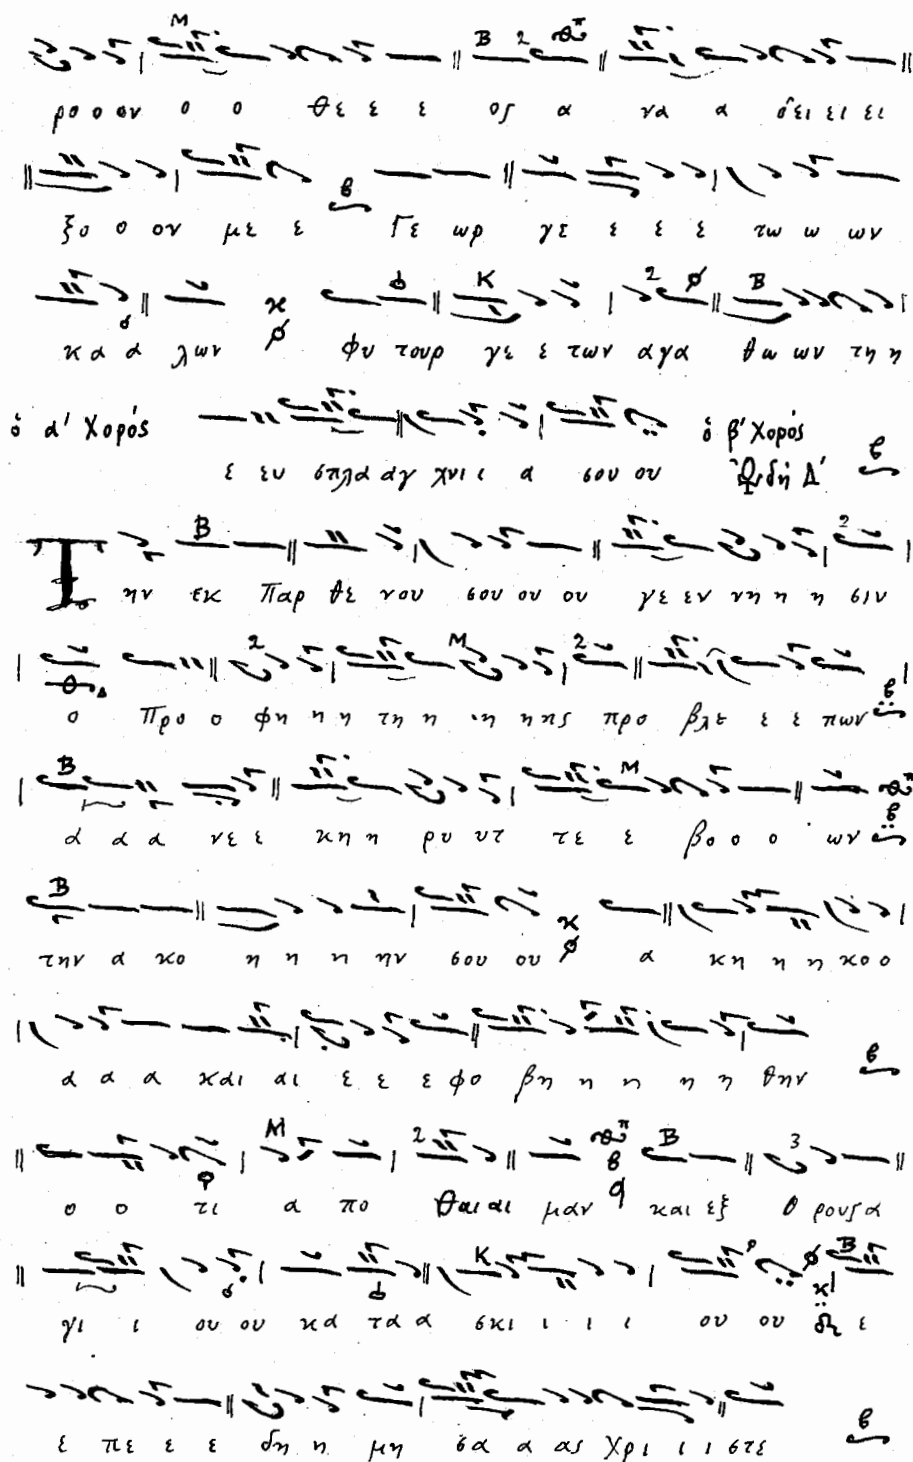 ρο ο ον ο ο θε ε ε ος α να α δει ει ει
ξο ο ον με ε Γε ωρ γε ε ε ε τω ω ων
κα α λων φυ τουρ γε ε των αγα θω ων τη η
ὁ α' Χορός ε ευ σπλα αγ χνι ι α σου ου ὁ β' Χορός
ᾨδὴ Δ'
Την εκ Παρ θε νου σου ου ου γε εν νη η η σιν
ο Προ ο φη η η τη η η η ης προ βλε ε ε πων
α α α νε ε κη η ρυ υτ τε ε βο ο ο ων
την α κο η η η ην σου ου α κη η η κο ο
α α α και αι ε ε ε φο βη η η η η θην
ο ο τι α πο Θαι αι μαν και εξ ο ρους α
γι ι ι ου ου κα τα α σκι ι ι ι ου ου δε ε
ε πε ε ε δη η μη σα α ας Χρι ι ι στε